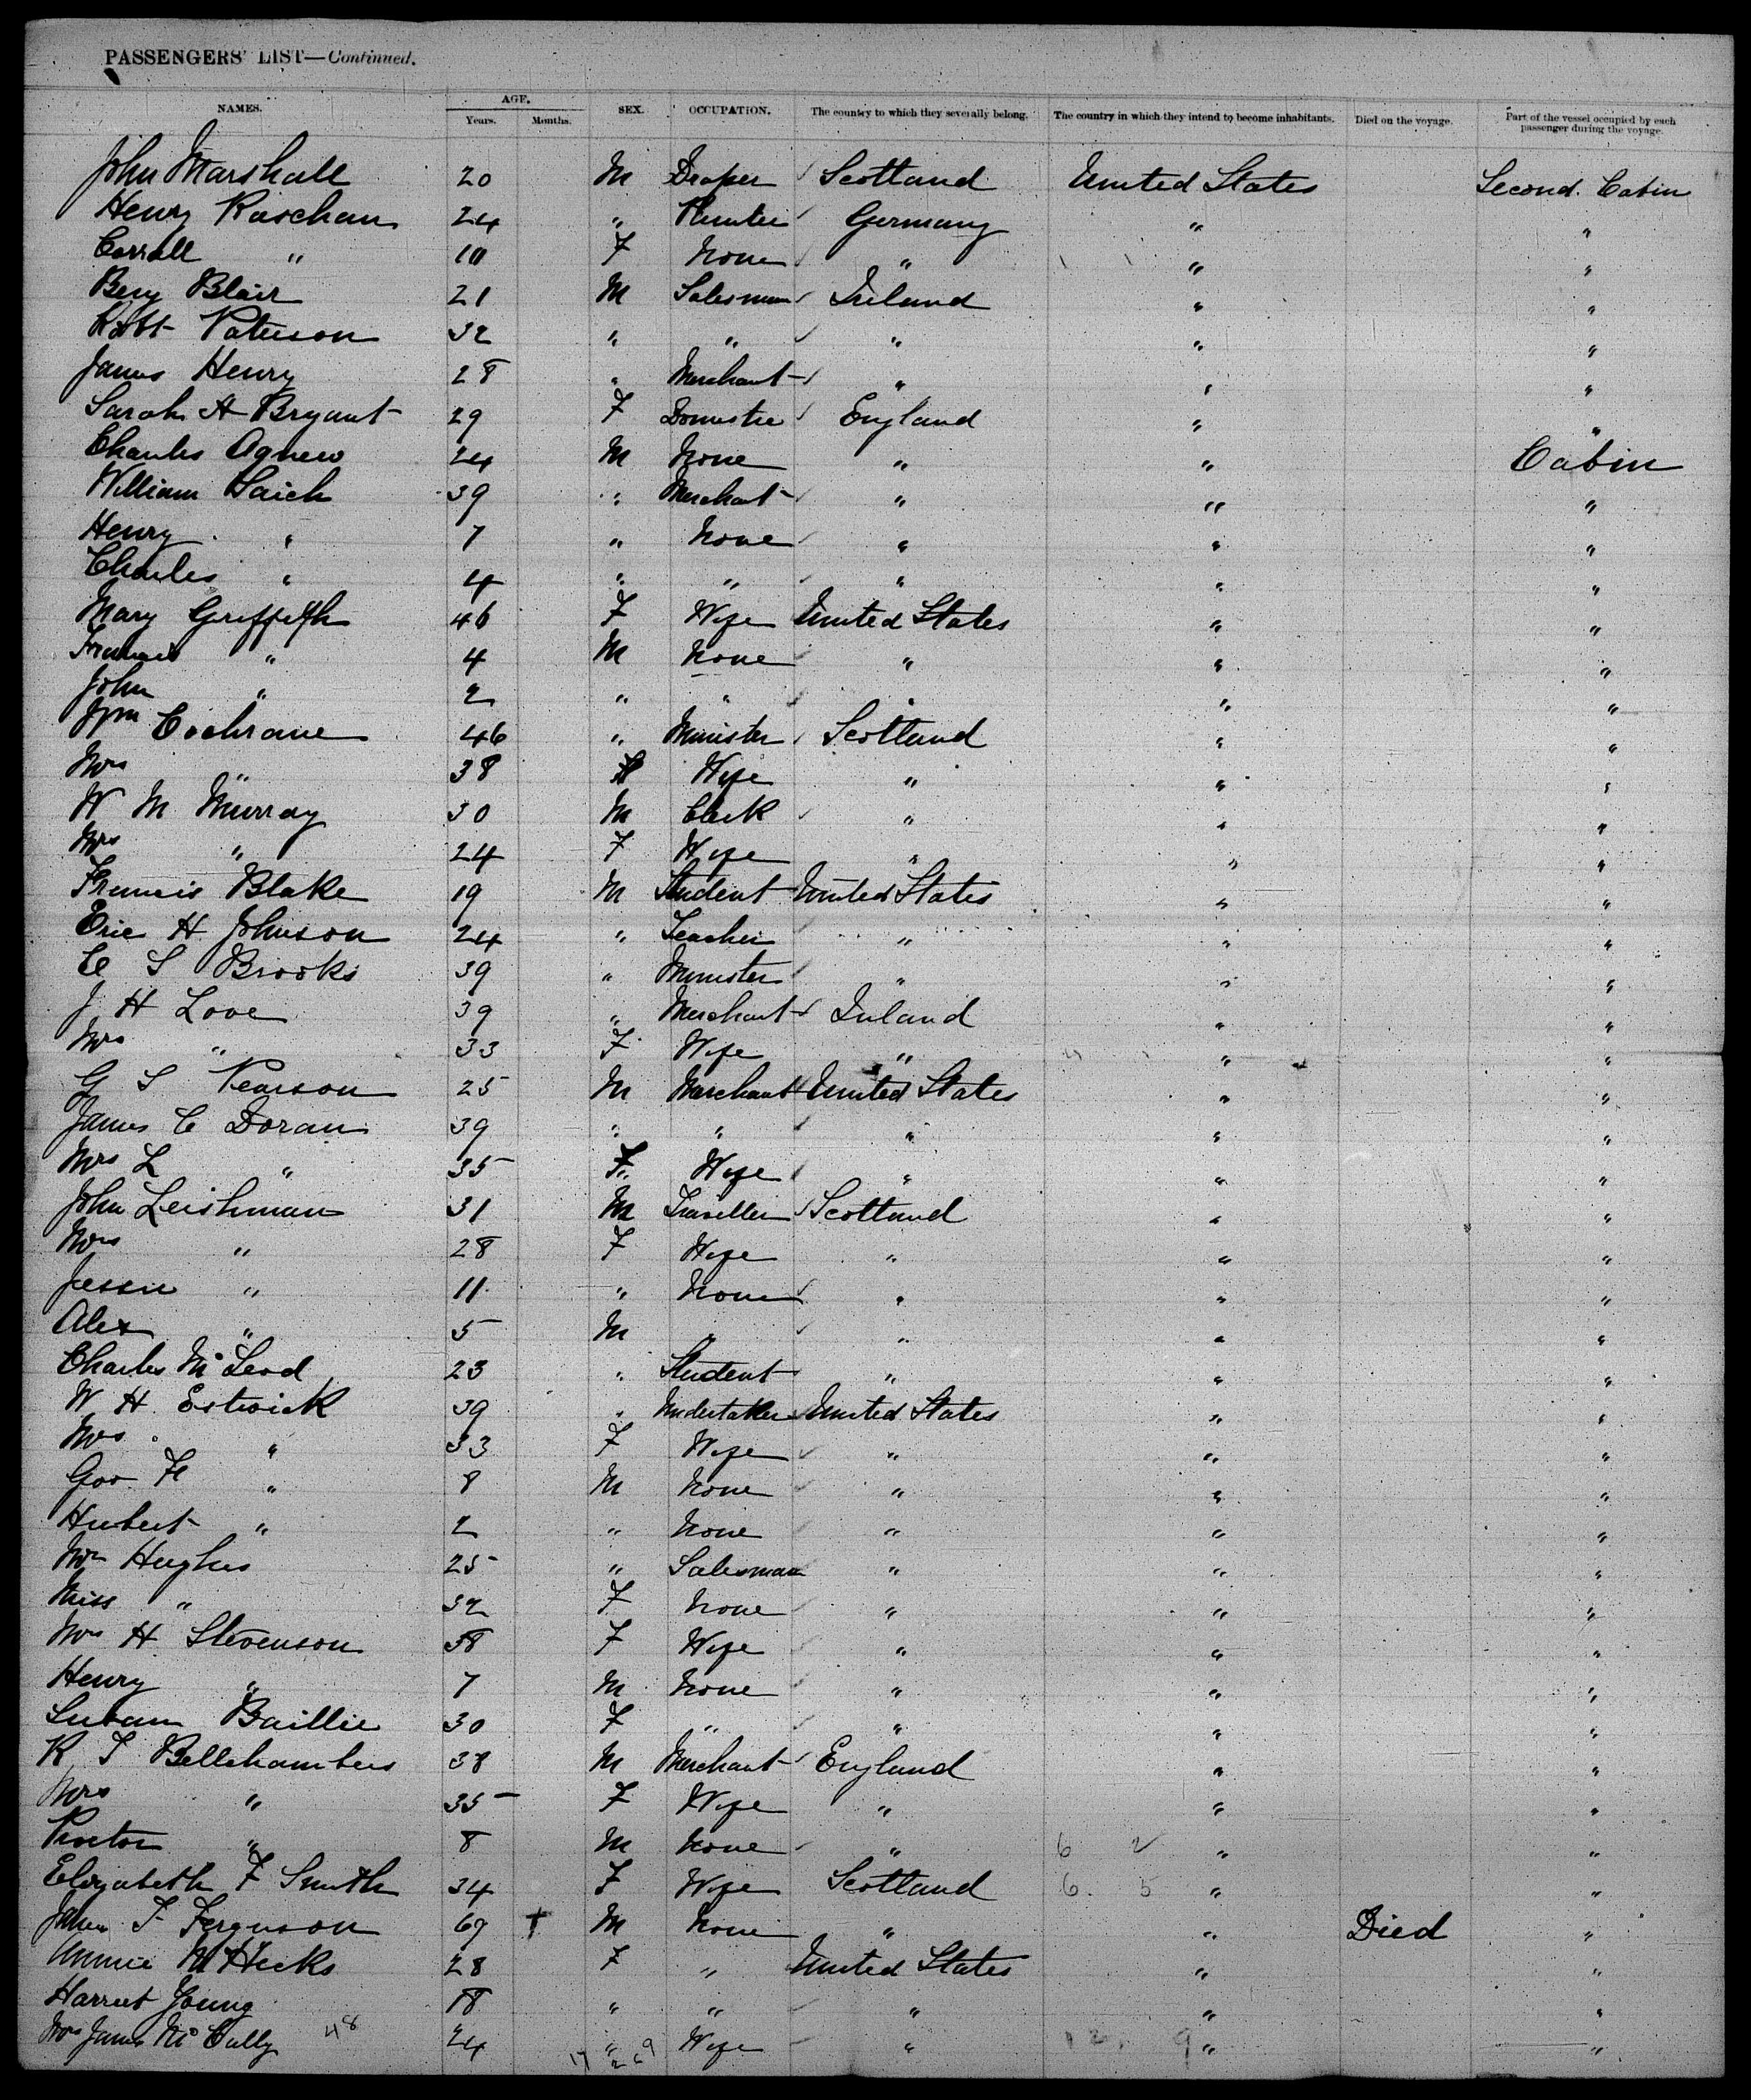 PASSENGERS' LIST—Continued.
NAMES. AGE. Years. Months. SEX. OCCUPATION. The country to which they severally belong. The country in which they intend to become inhabitants. Died on the voyage. Part of the vessel occupied by each passenger during the voyage.
John Marshall 20 M Draper Scotland United States Second Cabin
Henry Raschan 24 " Germany " "
Carrall " 10 F None " " "
Benj Blair 21 M Salesman Ireland " "
Robt Paterson 32 " " " " "
James Henry 28 " Merchant " " "
Sarah A Bryant 29 F Domestic England " "
Charles Agnew 24 M None " " Cabin
William Saich 39 " Merchant " " "
Henry " 7 " None " " "
Charles " 4 " " " " "
Mary Griffith 46 F Wife United States " "
Francis " 4 M None " " "
John " 2 " " " " "
Wm Cochrane 46 " Minister Scotland " "
Mrs " 38 F Wife " " "
W M Murray 30 M Clerk " " "
Mrs " 24 F Wife " " "
Francis Blake 19 M Student United States " "
Eric H Johnson 24 " Teacher " " "
C S Brooks 39 " Minister " " "
J H Love 39 " Merchant Ireland " "
Mrs " 33 F Wife " " "
G S Pearson 25 M Merchant United States " "
James C Doran 39 " " " " "
Mrs L " 35 F Wife " " "
John Leishman 31 M Traveller Scotland " "
Mrs " 28 F Wife " " "
Jessie " 11 " None " " "
Alex " 5 M " " " "
Charles McLeod 23 " Student " " "
W H Estwick 39 " Undertaker United States " "
Mrs " 33 F Wife " " "
Geo F " 8 M None " " "
Hubert " 2 " None " " "
Mr Hughes 25 " Salesman " " "
Miss " 32 F None " " "
Mrs H Stevenson 38 F Wife " " "
Henry " 7 M None " " "
Susan Baillie 30 F " " " "
R T Bellchambers 38 M Merchant England " "
Mrs " 35 F Wife " " "
Proctor " 8 M None " 6 2 " "
Elizabeth F Smith 34 F Wife Scotland 6. 5 " "
James T Ferguson 69 + M None " " Died "
Annie M Hicks 28 F " United States " "
Harriet Young 18 " " " " "
Mrs James McCully 48 24 " Wife " 9 " "
17 269